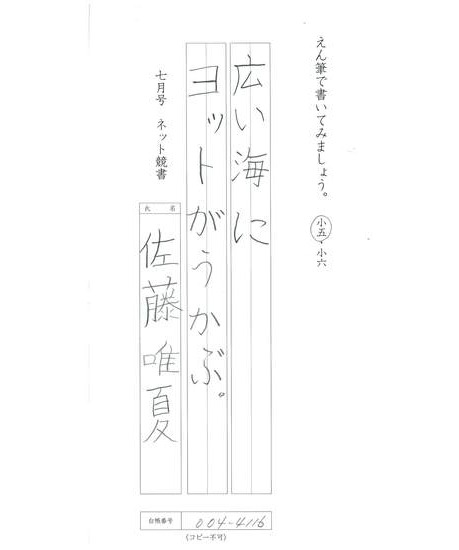 えん筆で書いてみましょう。 小五・小六
広い海に
ヨットがうかぶ。
七月号 ネット競書
氏名
佐藤唯夏
台帳番号 004-4116
(コピー不可)